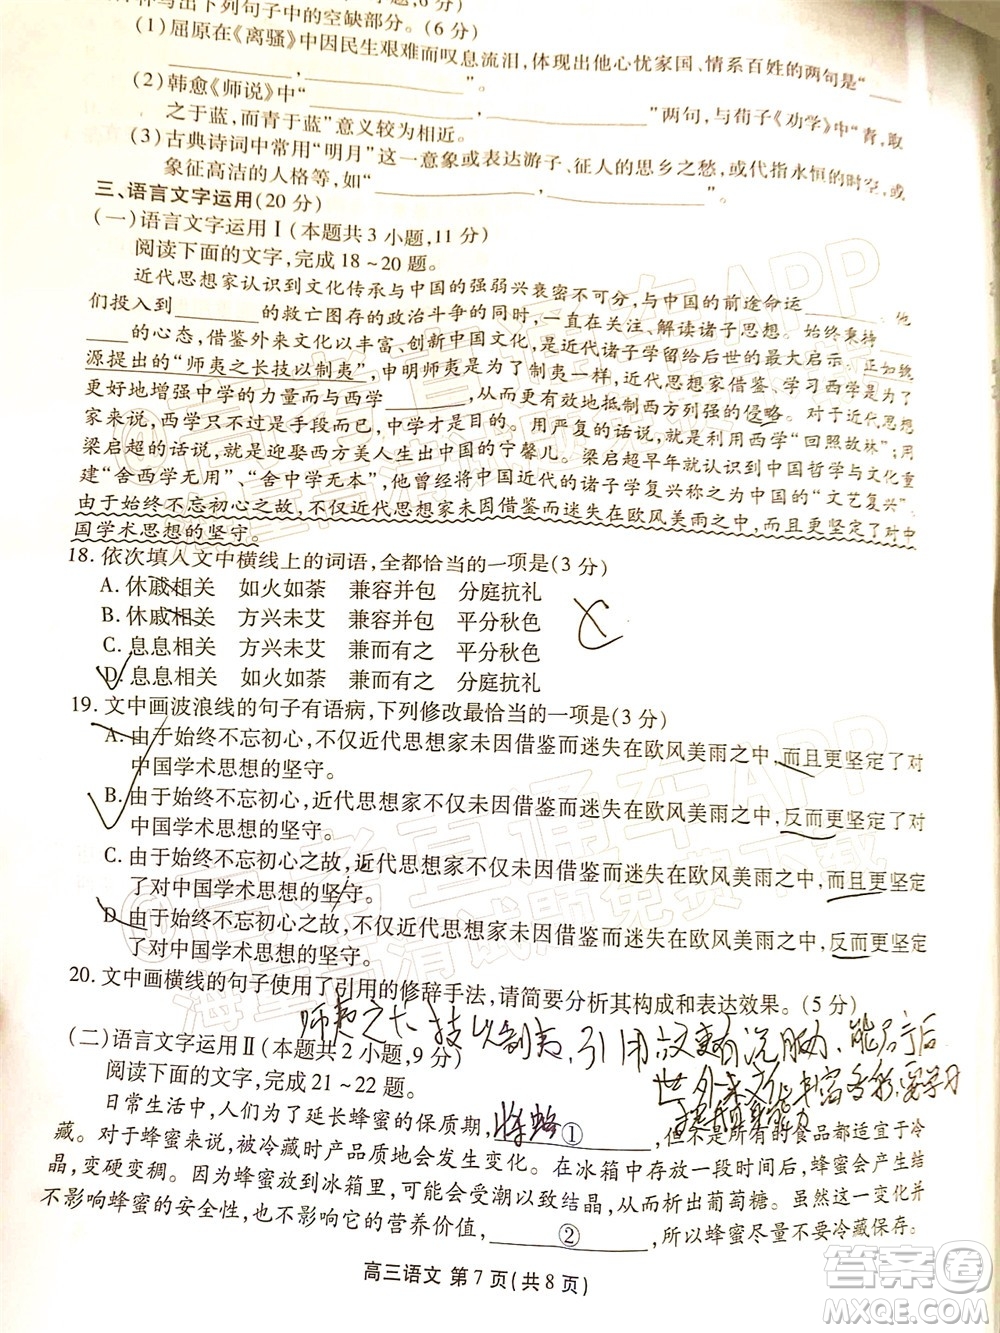 补写出下列句子中的空缺部分。(6 分)
(1) 屈原在《离骚》中因民生艰难而叹息流泪,体现出他心忧家国、情系百姓的两句是“___
________,________”。
(2) 韩愈《师说》中“________,________”两句,与荀子《劝学》中“青,取
之于蓝,而青于蓝”意义较为相近。
(3) 古典诗词中常用“明月”这一意象或表达游子、征人的思乡之愁,或代指永恒的时空,或
象征高洁的人格等,如“________,________”。
三、语言文字运用(20 分)
(一)语言文字运用Ⅰ(本题共 3 小题,11 分)
阅读下面的文字,完成 18～20 题。
近代思想家认识到文化传承与中国的强弱兴衰密不可分,与中国的前途命运______。他
们投入到______的救亡图存的政治斗争的同时,一直在关注、解读诸子思想。始终秉持___
___的心态、借鉴外来文化以丰富、创新中国文化,是近代诸子学留给后世的最大启示。正如魏
源提出的“师夷之长技以制夷”,申明师夷是为了制夷一样,近代思想家借鉴、学习西学是为了
更好地增强中学的力量而与西学______,进而更有效地抵制西方列强的侵略。对于近代思想
家来说,西学只不过是手段而已,中学才是目的。用严复的话说,就是利用西学“回照故林”;用
梁启超的话说,就是迎娶西方美人生出中国的宁馨儿。梁启超早年就认识到中国哲学与文化重
建“舍西学无用”、“舍中学无本”,他曾经将中国近代的诸子学复兴称为中国的“文艺复兴”。
由于始终不忘初心之故,不仅近代思想家未因借鉴而迷失在欧风美雨之中,而且更坚定了对中
国学术思想的坚守。
18. 依次填入文中横线上的词语,全都恰当的一项是(3 分)
A. 休戚相关 如火如荼 兼容并包 分庭抗礼
B. 休戚相关 方兴未艾 兼容并包 平分秋色
C. 息息相关 方兴未艾 兼而有之 平分秋色
D. 息息相关 如火如荼 兼而有之 分庭抗礼
19. 文中画波浪线的句子有语病,下列修改最恰当的一项是(3 分)
A. 由于始终不忘初心,不仅近代思想家未因借鉴而迷失在欧风美雨之中,而且更坚定了对
中国学术思想的坚守。
B. 由于始终不忘初心,近代思想家不仅未因借鉴而迷失在欧风美雨之中,反而更坚定了对
中国学术思想的坚守。
C. 由于始终不忘初心之故,近代思想家不仅未因借鉴而迷失在欧风美雨之中,而且更坚定
了对中国学术思想的坚守。
D. 由于始终不忘初心之故,不仅近代思想家未因借鉴而迷失在欧风美雨之中,反而更坚定
了对中国学术思想的坚守。
20. 文中画横线的句子使用了引用的修辞手法,请简要分析其构成和表达效果。(5 分)
师夷之长技以制夷,引用
(二)语言文字运用Ⅱ(本题共 2 小题,9 分)
阅读下面的文字,完成 21～22 题。
日常生活中,人们为了延长蜂蜜的保质期,____①____,但不是所有的食品都适宜于冷
藏。对于蜂蜜来说,被冷藏时产品质地会发生变化。在冰箱中存放一段时间后,蜂蜜会产生结
晶,变硬变稠。因为蜂蜜放到冰箱里,可能会受潮以致结晶,从而析出葡萄糖。虽然这一变化并
不影响蜂蜜的安全性,也不影响它的营养价值,____②____,所以蜂蜜尽量不要冷藏保存。
高三语文 第 7 页(共 8 页)
答案圈
MXQE.COM